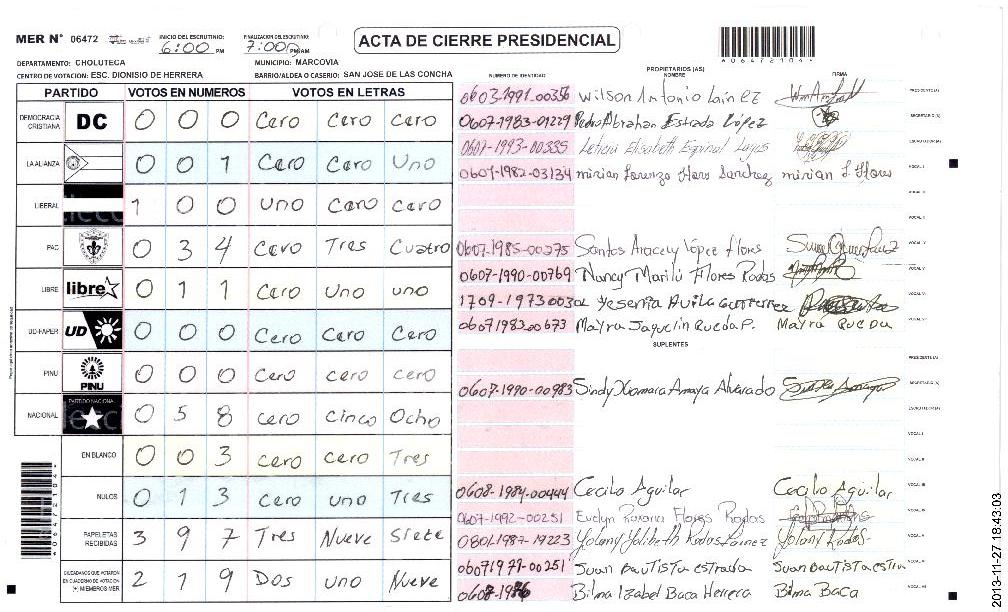 MER N° 06472
INICIO DEL ESCRUTINIO: 6:00 PM
FINALIZACION DEL ESCRUTINIO: 7:00 PM/AM
ACTA DE CIERRE PRESIDENCIAL
A06472104
DEPARTAMENTO: CHOLUTECA MUNICIPIO: MARCOVIA
CENTRO DE VOTACION: ESC. DIONISIO DE HERRERA BARRIO/ALDEA O CASERIO: SAN JOSE DE LAS CONCHA
PARTIDO VOTOS EN NUMEROS VOTOS EN LETRAS
DEMOCRACIA CRISTIANA DC 0 0 0 Cero Cero Cero
LA ALIANZA 0 0 1 Cero Cero Uno
LIBERAL 1 0 0 Uno Cero Cero
PAC 0 3 4 Cero Tres Cuatro
LIBRE libre 0 1 1 Cero Uno uno
UD-FAPER UD 0 0 0 Cero Cero Cero
PINU PINU 0 0 0 Cero cero cero
NACIONAL PARTIDO NACIONAL 0 5 8 cero Cinco Ocho
EN BLANCO 0 0 3 cero cero Tres
NULOS 0 1 3 cero uno Tres
PAPELETAS RECIBIDAS 3 9 7 Tres Nueve Siete
CIUDADANOS QUE VOTARON EN CUADERNO DE VOTACION (+) MIEMBROS MER 2 1 9 Dos uno Nueve
PROPIETARIOS (AS)
NUMERO DE IDENTIDAD NOMBRE FIRMA
0603-1991-00356 Wilson Antonio Laínez PRESIDENTE(A)
0607-1983-01229 Pedro Abrahan Estrada López SECRETARIO(A)
0607-1993-00335 Leticia Elisabeth Espinal ESCRUTADOR(A)
0607-1982-03134 mirian Lorenzo Flores Sanchez mirian L Flores VOCAL I
VOCAL II
VOCAL III
0607-1985-00275 Santos Aracely López Flores VOCAL IV
0607-1990-00769 Nancy Marilú Flores Rodas VOCAL V
1709-1973 Yesenia Avila Gutierrez
0607 1983 00673 Mayra Jaquelin Rueda P. Mayra Rueda
SUPLENTES
PRESIDENTE(A)
0607-1990-00983 Sindy Xiomara Amaya Alvarado SECRETARIO(A)
ESCRUTADOR(A)
VOCAL I
VOCAL II
0608-1984-00444 Cecilo Aguilar Cecilo Aguilar VOCAL III
0607-1992-00251 Evelyn Roxana Flores Rodas
0801-1987-19223 Yolany Yolibeth Rodas Lainez Yolany Rodas
0607 1977-00251 Juan Bautista estrada Juan Bautista estra
0608-19 Bilma Izabel Baca Herrera Bilma Baca
A06472104
2013-11-27 18:43:03